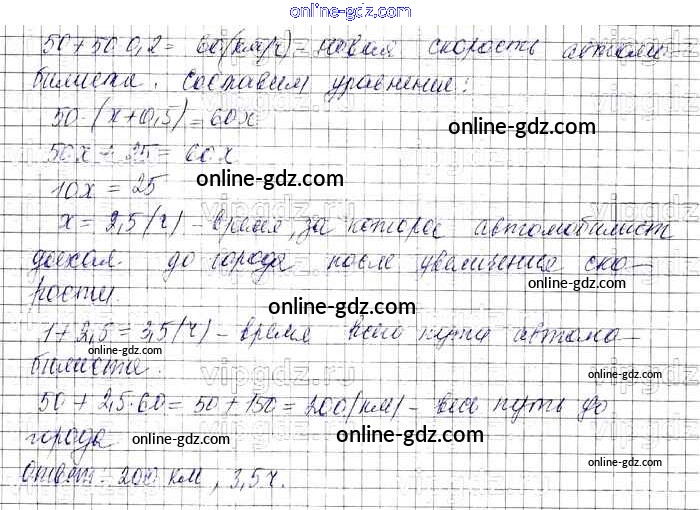 online-gdz.com
50 + 50·0,2 = 60(км/ч) – новая скорость автомо-
билиста. Составим уравнение:
50·(x+0,5)=60x
online-gdz.com
50x + 25 = 60x
online-gdz.com
10x = 25
online-gdz.com
vipgdz.ru
x = 2,5(ч) – время, за которое автомобилист
доехал до города после увеличения ско-
online-gdz.com
рости.
online-gdz.com
1 + 2,5 = 3,5(ч) – время всего пути автомо-
online-gdz.com
билиста.
vipgdz.ru
online-gdz.com
50 + 2,5·60 = 50 + 150 = 200(км) – весь путь до
города
online-gdz.com
online-gdz.com
online-gdz.com
online-gdz.com
Ответ: 200 км, 3,5ч.